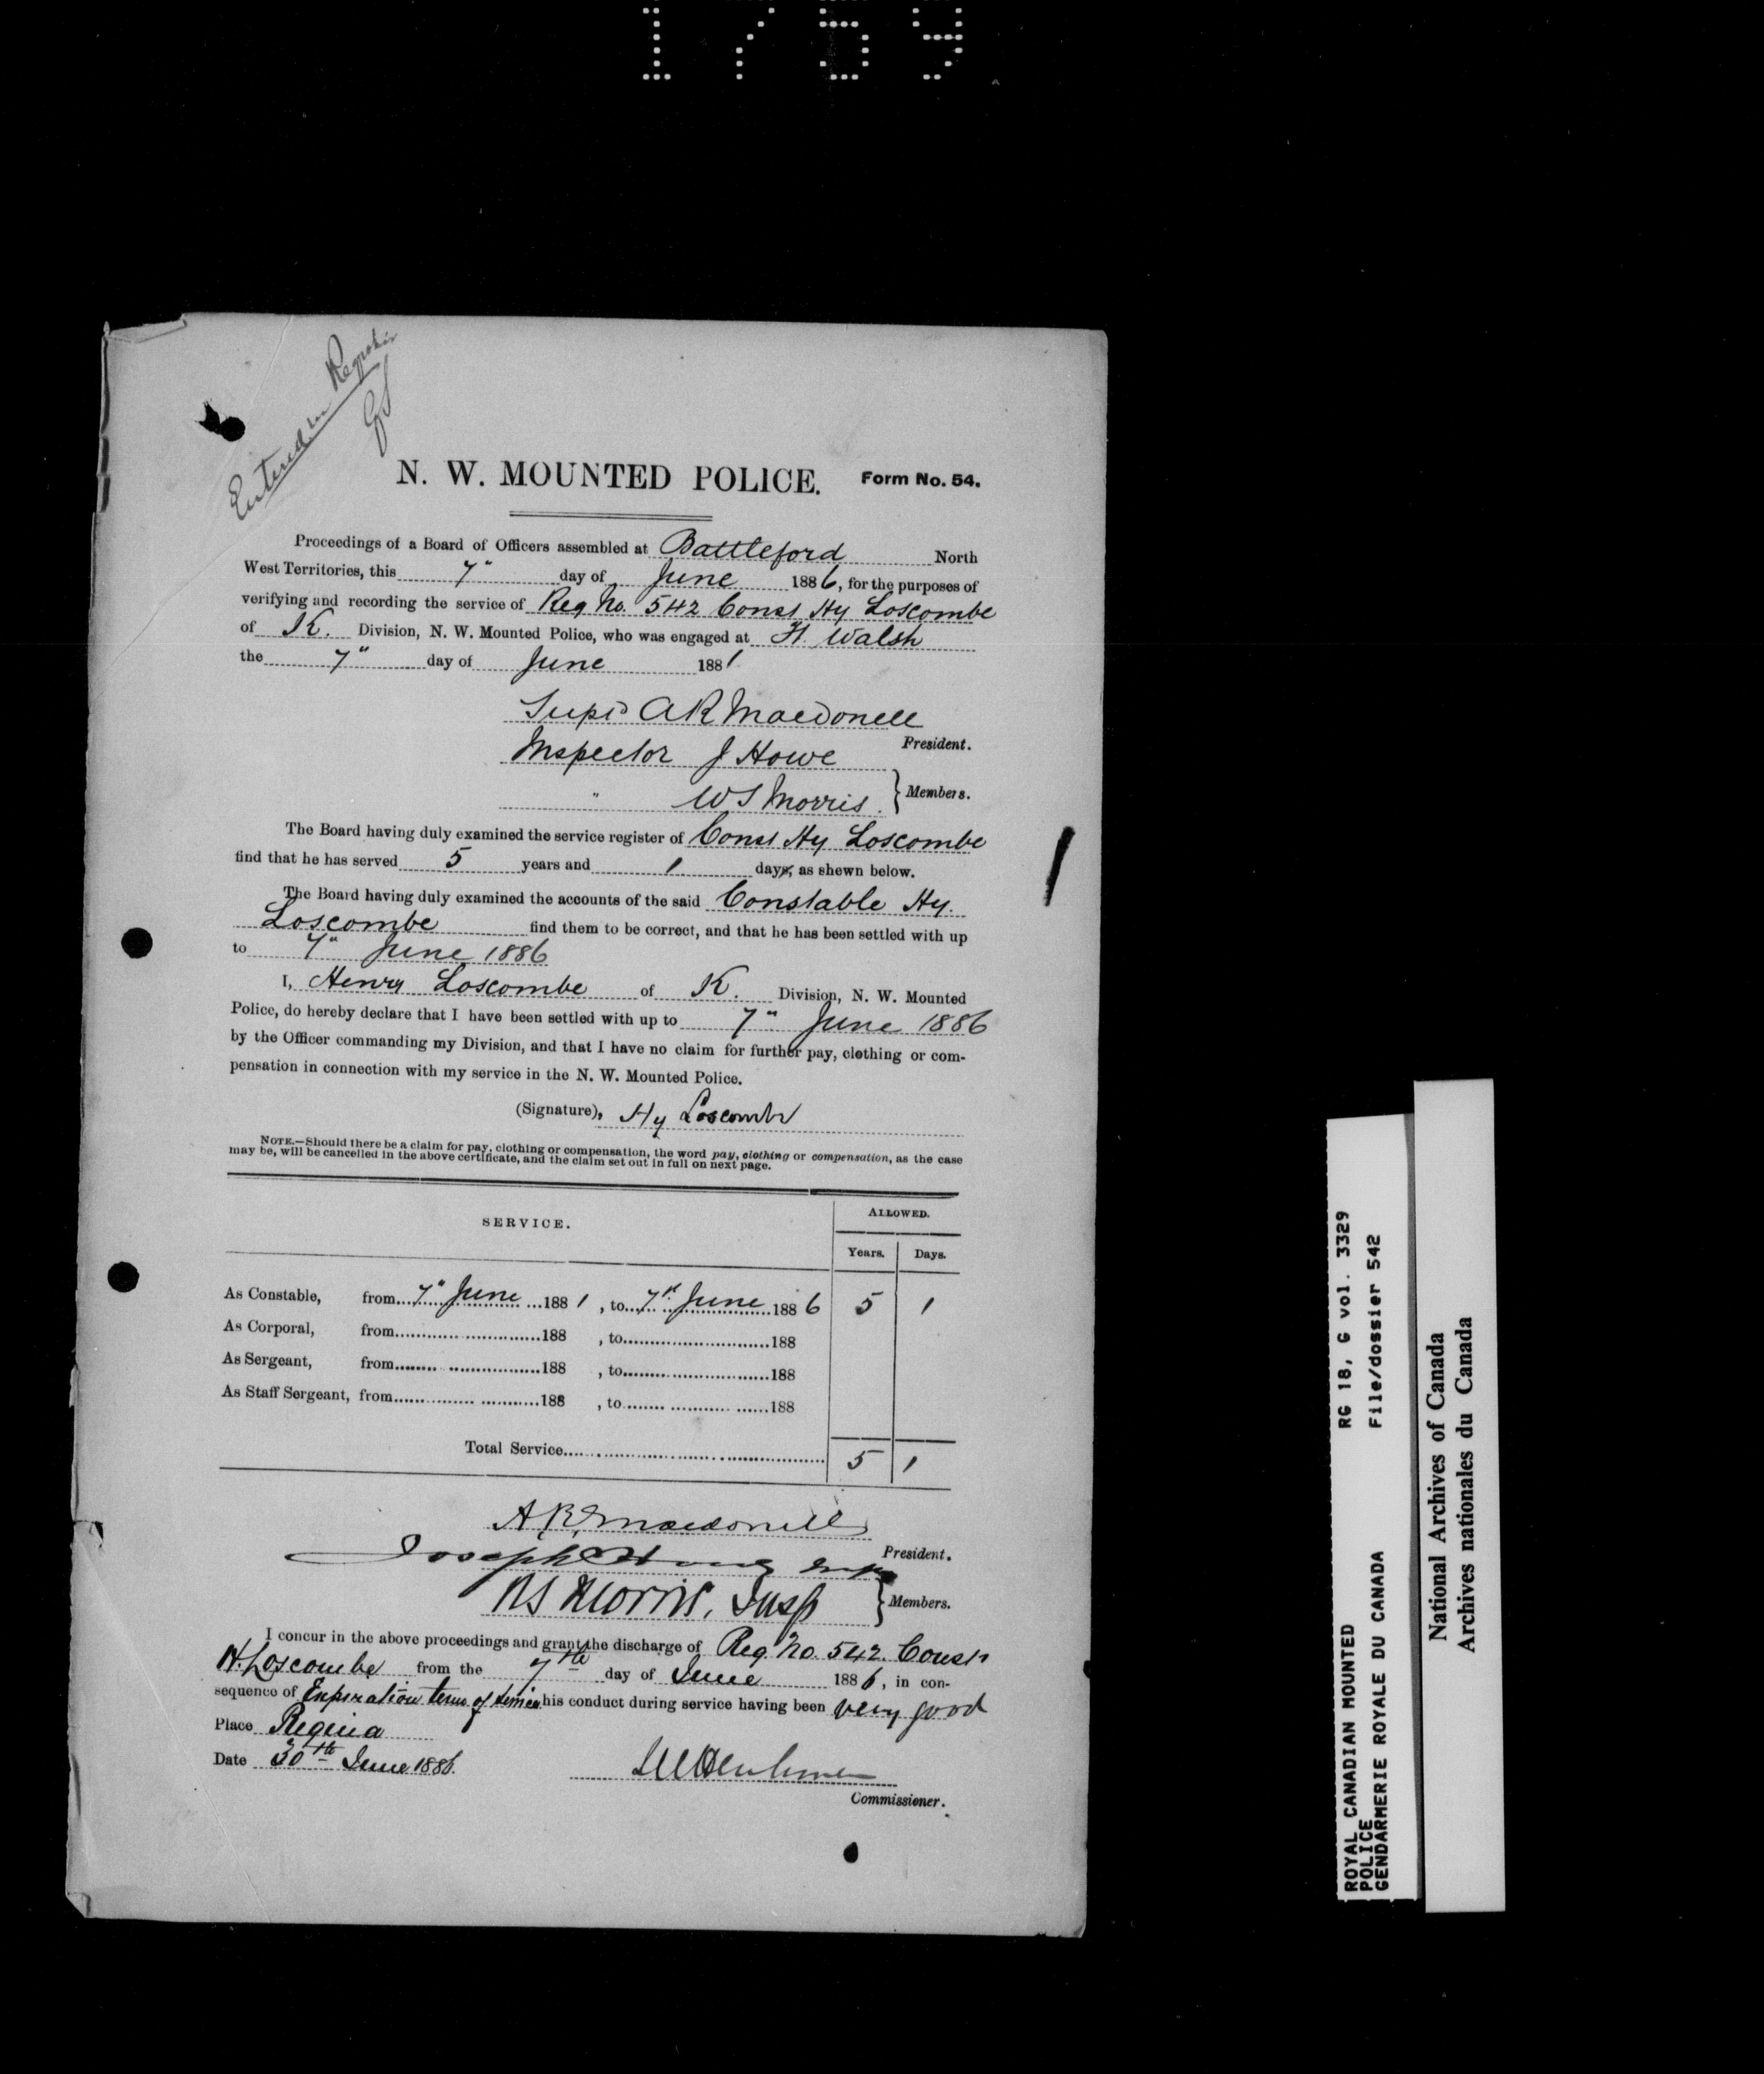 1759
Entered in Register
N. W. MOUNTED POLICE. Form No. 54.
Proceedings of a Board of Officers assembled at Battleford North
West Territories, this 7" day of June 1886, for the purposes of
verifying and recording the service of Reg No. 542 Const Hy Loscombe
of K. Division, N. W. Mounted Police, who was engaged at Ft. Walsh
the 7" day of June 1881
Supt A R Macdonell
President.
Inspector J Howe
" W S Morris } Members.
The Board having duly examined the service register of Const Hy Loscombe
find that he has served 5 years and 1 days, as shewn below.
The Board having duly examined the accounts of the said Constable Hy.
Loscombe find them to be correct, and that he has been settled with up
to 7" June 1886
I, Henry Loscombe of K. Division, N. W. Mounted
Police, do hereby declare that I have been settled with up to 7" June 1886
by the Officer commanding my Division, and that I have no claim for further pay, clothing or com-
pensation in connection with my service in the N. W. Mounted Police.
(Signature), Hy Loscombe
NOTE.—Should there be a claim for pay, clothing or compensation, the word pay, clothing or compensation, as the case
may be, will be cancelled in the above certificate, and the claim set out in full on next page.
SERVICE. ALLOWED.
Years. Days.
As Constable, from 7" June 1881, to 7th June 1886 5 1
As Corporal, from 188 , to 188
As Sergeant, from 188 , to 188
As Staff Sergeant, from 188 , to 188
Total Service 5 1
A. R. Macdonell
President.
Joseph Howe Insp
W S Morris, Insp } Members.
I concur in the above proceedings and grant the discharge of Reg. No. 542. Const
H. Loscombe from the 7th day of June 1886, in con-
sequence of Expiration term of service his conduct during service having been very good
Place Regina
Date 30th June 1886.
Commissioner.
ROYAL CANADIAN MOUNTED
POLICE
GENDARMERIE ROYALE DU CANADA
RG 18, G vol. 3329
File/dossier 542
National Archives of Canada
Archives nationales du Canada